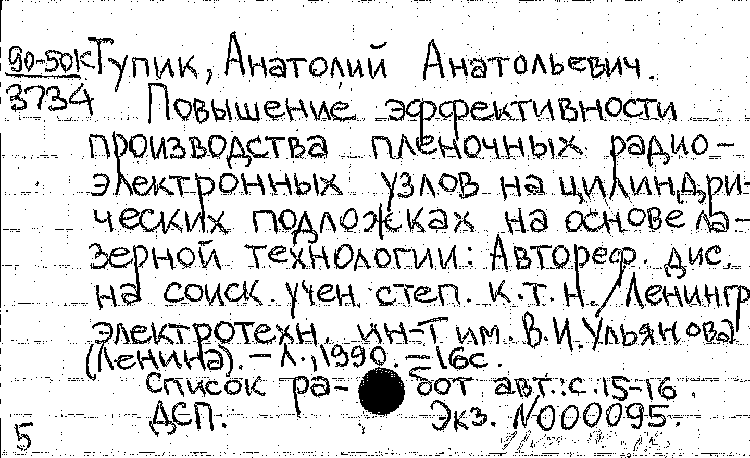 90-50К Тупик, Анатолий Анатольевич.
3734 Повышение эффективности
производства пленочных радио-
электронных узлов на цилиндри-
ческих подложках на основе ла-
зерной технологии: Автореф. дис.
на соиск. учен степ. к.т.н. / Ленингр
электротехн. ин-т им. В.И.Ульянова
(Ленина). – Л., 1990. – 16с.
Список ра- бот авт.: с.15-16.
ДСП. Экз. №000095.
5